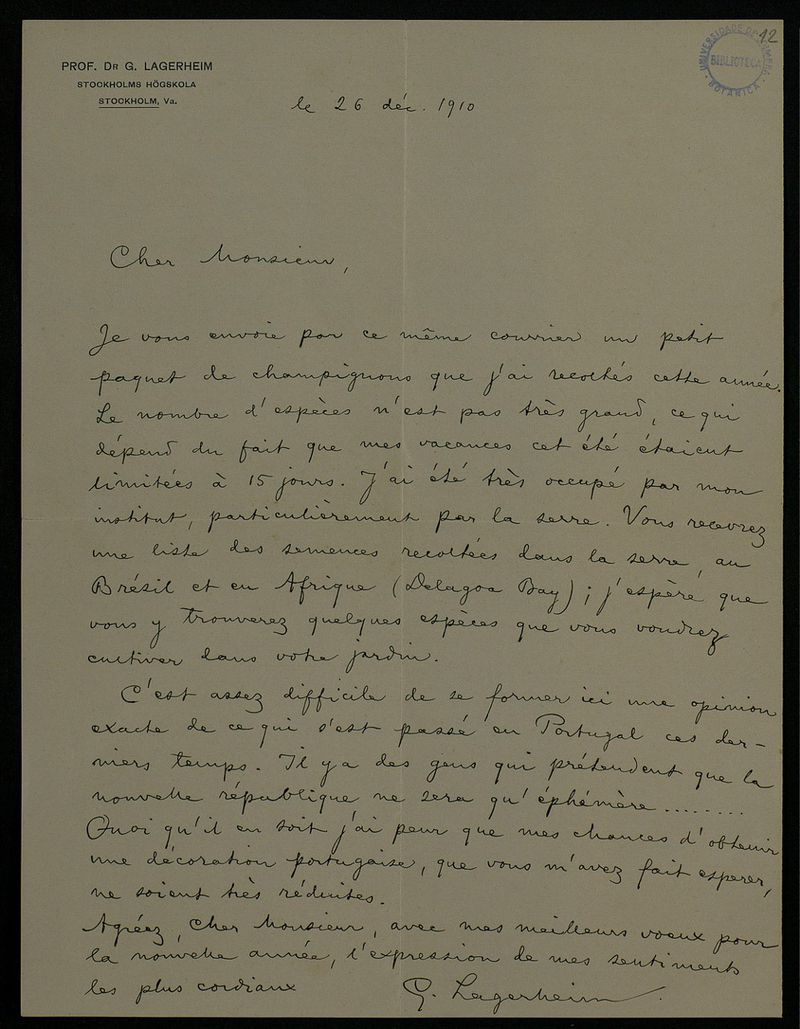 PROF. DR G. LAGERHEIM
STOCKHOLMS HÖGSKOLA
STOCKHOLM, Va.
12
UNIVERSIDADE DE COIMBRA
BIBLIOTECA
BOTANICA
le 26 déc. 1910
Cher Monsieur,
Je vous envoie par ce même courrier un petit
paquet de champignons que j'ai recoltés cette année.
Le nombre d'espèces n'est pas très grand, ce qui
dépend du fait que mes vacances cet été étaient
limitées à 15 jours. J'ai été très occupé par mon
institut, particulièrement par la serre. Vous recevrez
une liste des semences recoltées dans la serre, au
Brésil et en Afrique (Delagoa Bay); j'espère que
vous y trouverez quelques espèces que vous voudrez
cultiver dans votre jardin.
C'est assez difficile de se former ici une opinion
exacte de ce qui s'est passé en Portugal ces der-
niers temps. Il y a des gens qui prétendent que la
nouvelle république ne sera qu'éphémère ........
Quoi qu'il en soit j'ai peur que mes chances d'obtenir
une décoration portugaise, que vous m'avez fait esperer,
ne soient très réduites.
Agréez, Cher Monsieur, avec mes meilleurs voeux pour
la nouvelle année, l'expression de mes sentiments
les plus cordiaux
G. Lagerheim.